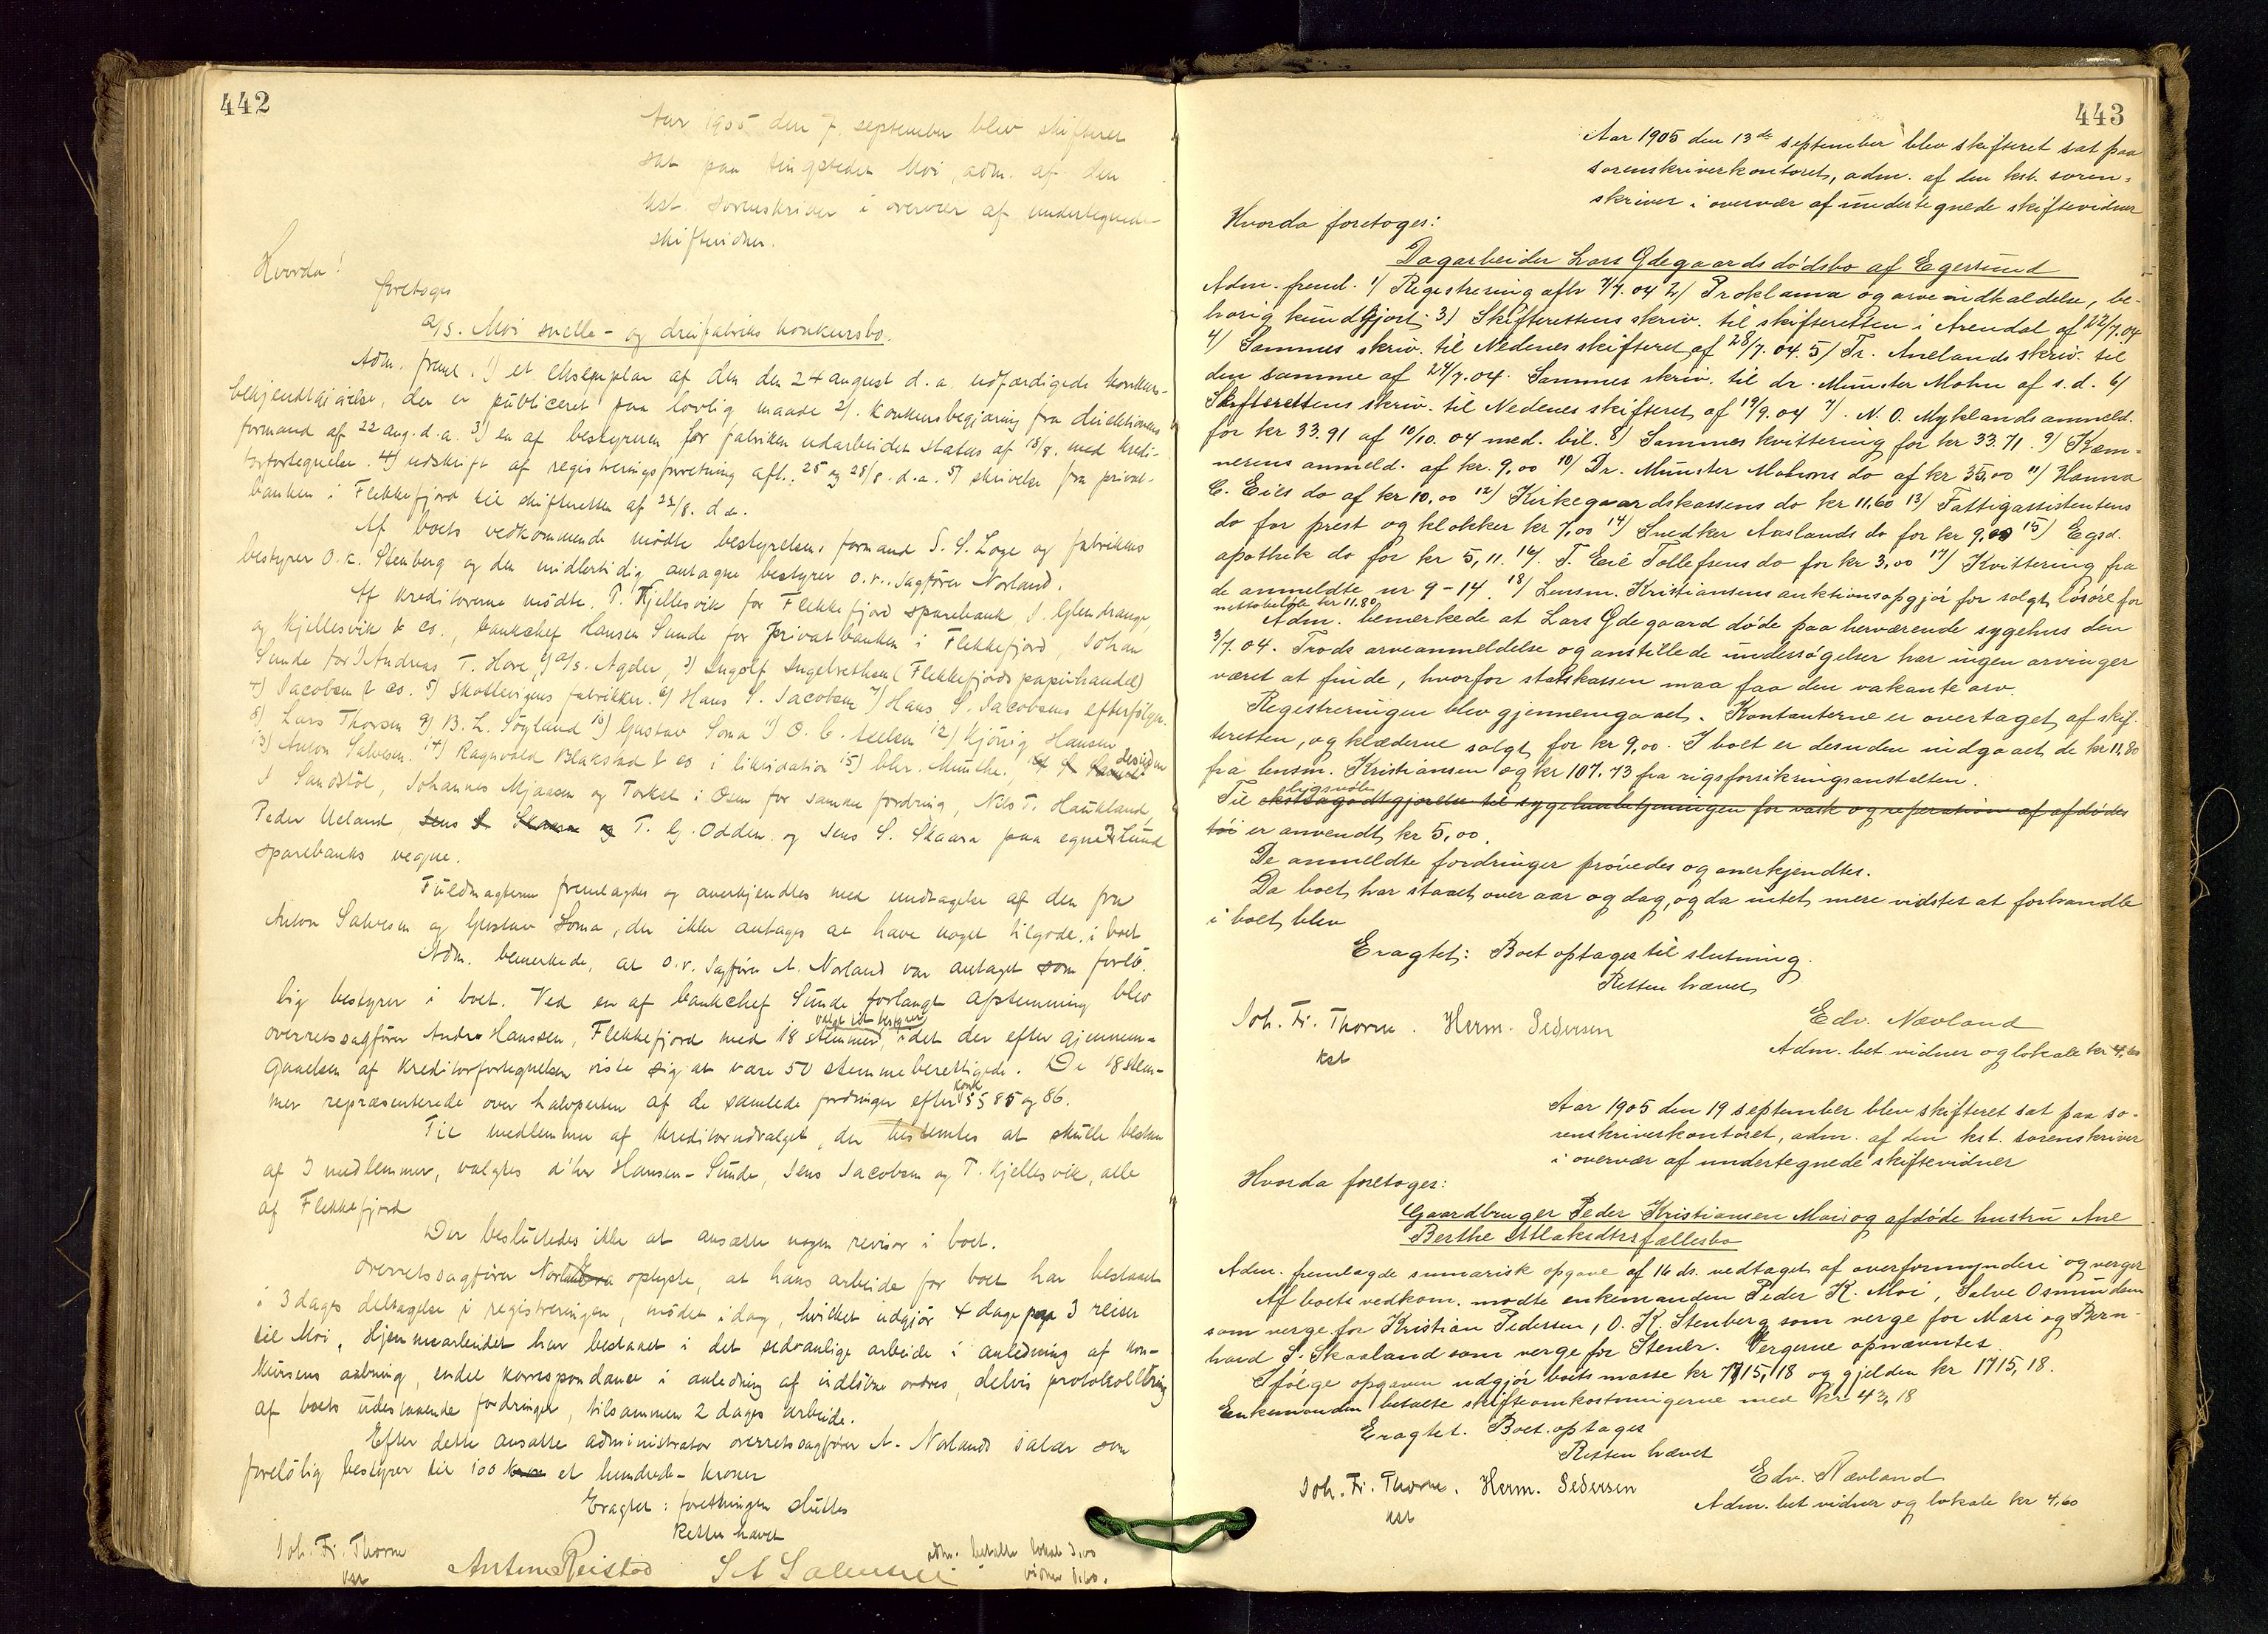 442
Aar 1905 den 7. september blev skifteret
sat paa tingstedet Moi, adm. af den
kst sorenskriver i overvær af undertegnede
skiftevidner.
Hvorda!
foretoges
a/s. Moi snelle- og dreifabriks konkursbo.
Adm. freml. 1) et eksemplar af den den 24 august d.a. udfærdigede konkurs-
bekjendtgjørelse, der er publiceret paa lovlig maade 2/. konkursbegjæring fra direktionens
formand af 22 aug. d.a. 3) en af bestyreren for fabriken udarbeidet status af 18/8. med kredi-
torfortegnelse. 4) udskrift af registreringsforretning afh. 25 og 28/8. d.a. 5) skrivelse fra privat-
banken i Flekkefjord til skifteretten af 22/8. d.a.
Af boets vedkommende mødte bestyrelsens formand S. S. Loge og fabrikens
bestyrer O. K. Stenberg og den midlertidig antagne bestyrer o.r.sagfører Norland.
Af kreditorerne mødte. T. Kjellesvik for Flekkefjord sparebank, J. Glendrange,
og Kjellesvik & co., bankchef Hansen Sunde for privatbanken i Flekkefjord, Johan
Sunde for 1) Andreas T. Hove, 2) a/s. Agder, 3) Ingolf Ingebrethsen (Flekkefjords papirhandel)
4) Jacobsen & co. 5) Skottevigens fabrikker. 6) Hans S. Jacobsen 7) Hans S. Jacobsens efterfølger.
8) Lars Thorsen 9) B. L. Søyland 10) Gustav Soma 11) O. C. Axelsen 12) Kjønig Hansen
13) Anton Salvesen. 14) Ragnvald Blakstad & co i likvidation 15) Chr. Munthe. desuden
J Sandstøl, Johannes Mjaasen og Torkel i Osen for samme fordring, Nils T. Haukland,
Peder Ueland, Jens S Skaara og T. G. Odden og Jens S. Skaara paa egne & Lund
sparebanks vegne.
Fuldmagterne fremlagdes og anerkjendtes med undtagelse af den fra
Anton Salvesen og Gustav Soma, der ikke antages at have noget tilgode i boet
Adm. bemerkede, at o.r. sagfører A. Norland var antaget som forlø-
big bestyrer i boet. Ved en af bankchef Sunde forlangt afstemning blev
valgt til bestyrer
overretssagfører Andr. Hanssen, Flekkefjord med 18 stemmer, idet der efter gjennem-
gaaelsen af kreditorfortegnelsen viste sig at være 50 stemmeberettigede. De 18 stem-
mer repræsenterede over halvparten af de samlede fordringer efter konk §§ 85 og 86.
Til medlemmer af kreditorudvalget, der bestemtes at skulle bestaa
af 3 medlemmer, valgtes d'hrr Hansen-Sunde, Jens Jacobsen og T. Kjellesvik, alle
af Flekkefjord
Der besluttedes ikke at ansætte nogen revisor i boet.
Overretssagfører Norland oplyste, at hans arbeide for boet har bestaaet
i 3 dages deltagelse i registreringen, mødet idag, hvilket udgjør 4 dage paa 3 reiser
til Moi, Hjemmearbeidet har bestaaet i det sedvanlige arbeide i anledning af kon-
kursens aabning, endel korrespondance i anledning af indløbne ordres, delvis protokollering
af boets udestaaende fordringer, tilsammen 2 dages arbeide.
Efter dette ansatte administrator overretssagfører A. Norlands salær som
foreløbig bestyrer til 100 kron et hundrede- kroner
Eragtet: forretningen sluttes
Retten hævet
Joh. Fr. Thorne
kst
Anton Reistad
S A Salmsen
adm. betalte lokale 3,00
vidner 1.60.
443
Aar 1905 den 13de september blev skifteret sat paa
sorenskriverkontoret, adm. af den kst. soren=
skriver i overvær af undertegnede skiftevidner
Hvorda foretoges:
Dagarbeider Lars Ødegaards dødsbo af Egersund
Adm. freml. 1) Registrering afh 7/7. 04 2) Proklama og arveindkaldelse, be-
hørig kundgjort. 3) Skifterettens skriv. til skifteretten i Arendal af 22/7.04
4) Sammes skriv. til Nedenes skifteret af 28/7. 04. 5) Tr. Anelands skriv. til
den samme af 24/7.04. Sammes skriv. til dr. Münster Mohn af s.d. 6)
Skifterettens skriv. til Nedenes skifteret af 19/9. 04 7). N. O. Myklands anmeld.
for kr 33.91 af 10/10. 04 med. bil. 8) Sammes kvittering for kr 33.71. 9) Kæm-
nerens anmeld. af kr. 9,00 10) Dr. Münster Mohns do af kr 35,00 11) Hanna
C. Eies do af kr 10,00 12) Kirkegaardskassens do kr 11,60 13) Fattigassistentens
do for prest og klokker kr 7,00 14) Snedker Aaslands do for kr 9,00 15) Egsd.
apothek do for kr 5,11. 16). T. Eie Tollefsens do for kr 3,00 17) Kvittering fra
de anmeldte nr 9-14. 18) Lensm. Kristiansens auktionsopgjør for solgt løsøre for
nettobeløb kr 11.80
Adm. bemerkede at Lars Ødegaard døde paa herværende sygehus den
3/7. 04. Trods arveanmeldelse og anstillede undersøgelser har ingen arvinger
været at finde, hvorfor statskassen maa faa den vakante arv.
Registreringen blev gjennemgaaet. Kontanterne er overtaget af skif-
teretten, og klæderne solgt for kr 9,00. I boet er desuden indgaaet de kr 11,80
fra lensm. Kristiansen og kr 107.73 fra rigsforsikringsanstalten.
Til ekstragodtgjørelse til sygehusbetjeningen for vask og reparation af afdødes
tøi er anvendt kr 5,00.
De anmeldte fordringer prøvedes og anerkjendtes.
Da boet har staaet over aar og dag, og da intet mere vidstes at forhandle
i boet, blev
Eragtet: Boet optages til slutning.
Retten hævet
Joh. Fr. Thorne. Herm. Pedersen
kst
Edv. Nævland
Adm. bet. vidner og lokale kr 4,60
Aar 1905 den 19 september blev skifteret sat paa so-
renskriverkontoret, adm. af den kst. sorenskriver
i overvær af undertegnede skiftevidner
Hvorda foretoges:
Gaardbruger Peder Kristiansen Moi og afdøde hustru Ane
Berthe Atlaksdtrs fællesbo
Adm. fremlagde sumarisk opgave af 16 ds. vedtaget af overformynderi og verger
Af boets vedkom. mødte enkemanden Peder K. Moi, Salve Osmundsen
som verge for Kristian Pedersen, O. K. Stenberg som verge for Mari og Bern-
hard J. Skaaland som verge for Stener. Vergerne opnævntes.
Ifølge opgaven udgjør boets masse kr 7715,18 og gjelden kr 1715,18.
Enkemanden betalte skifteomkostningerne med kr 43,18
Eragtet. Boet optages
Retten hævet
Joh. Fr. Thorne. Herm. Pedersen
kst
Edv. Nævland
Adm. bet vidner og lokale kr 4,60